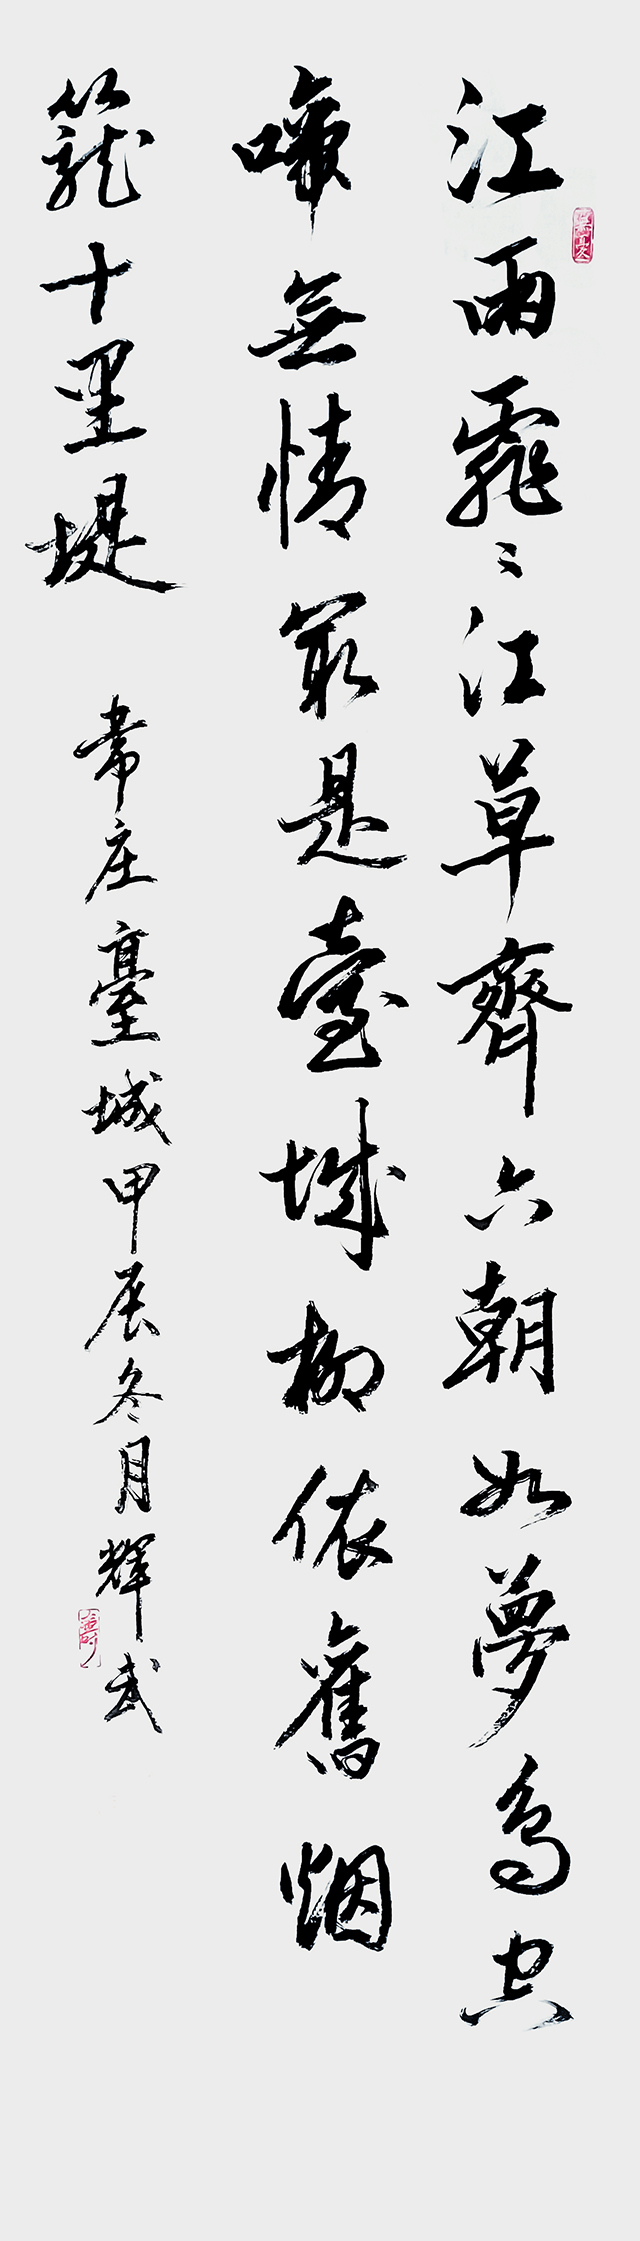 江雨霏〻江草齊六朝如夢鳥空
啼無情最是臺城柳依舊烟
籠十里堤 韋庄臺城甲辰冬月輝武